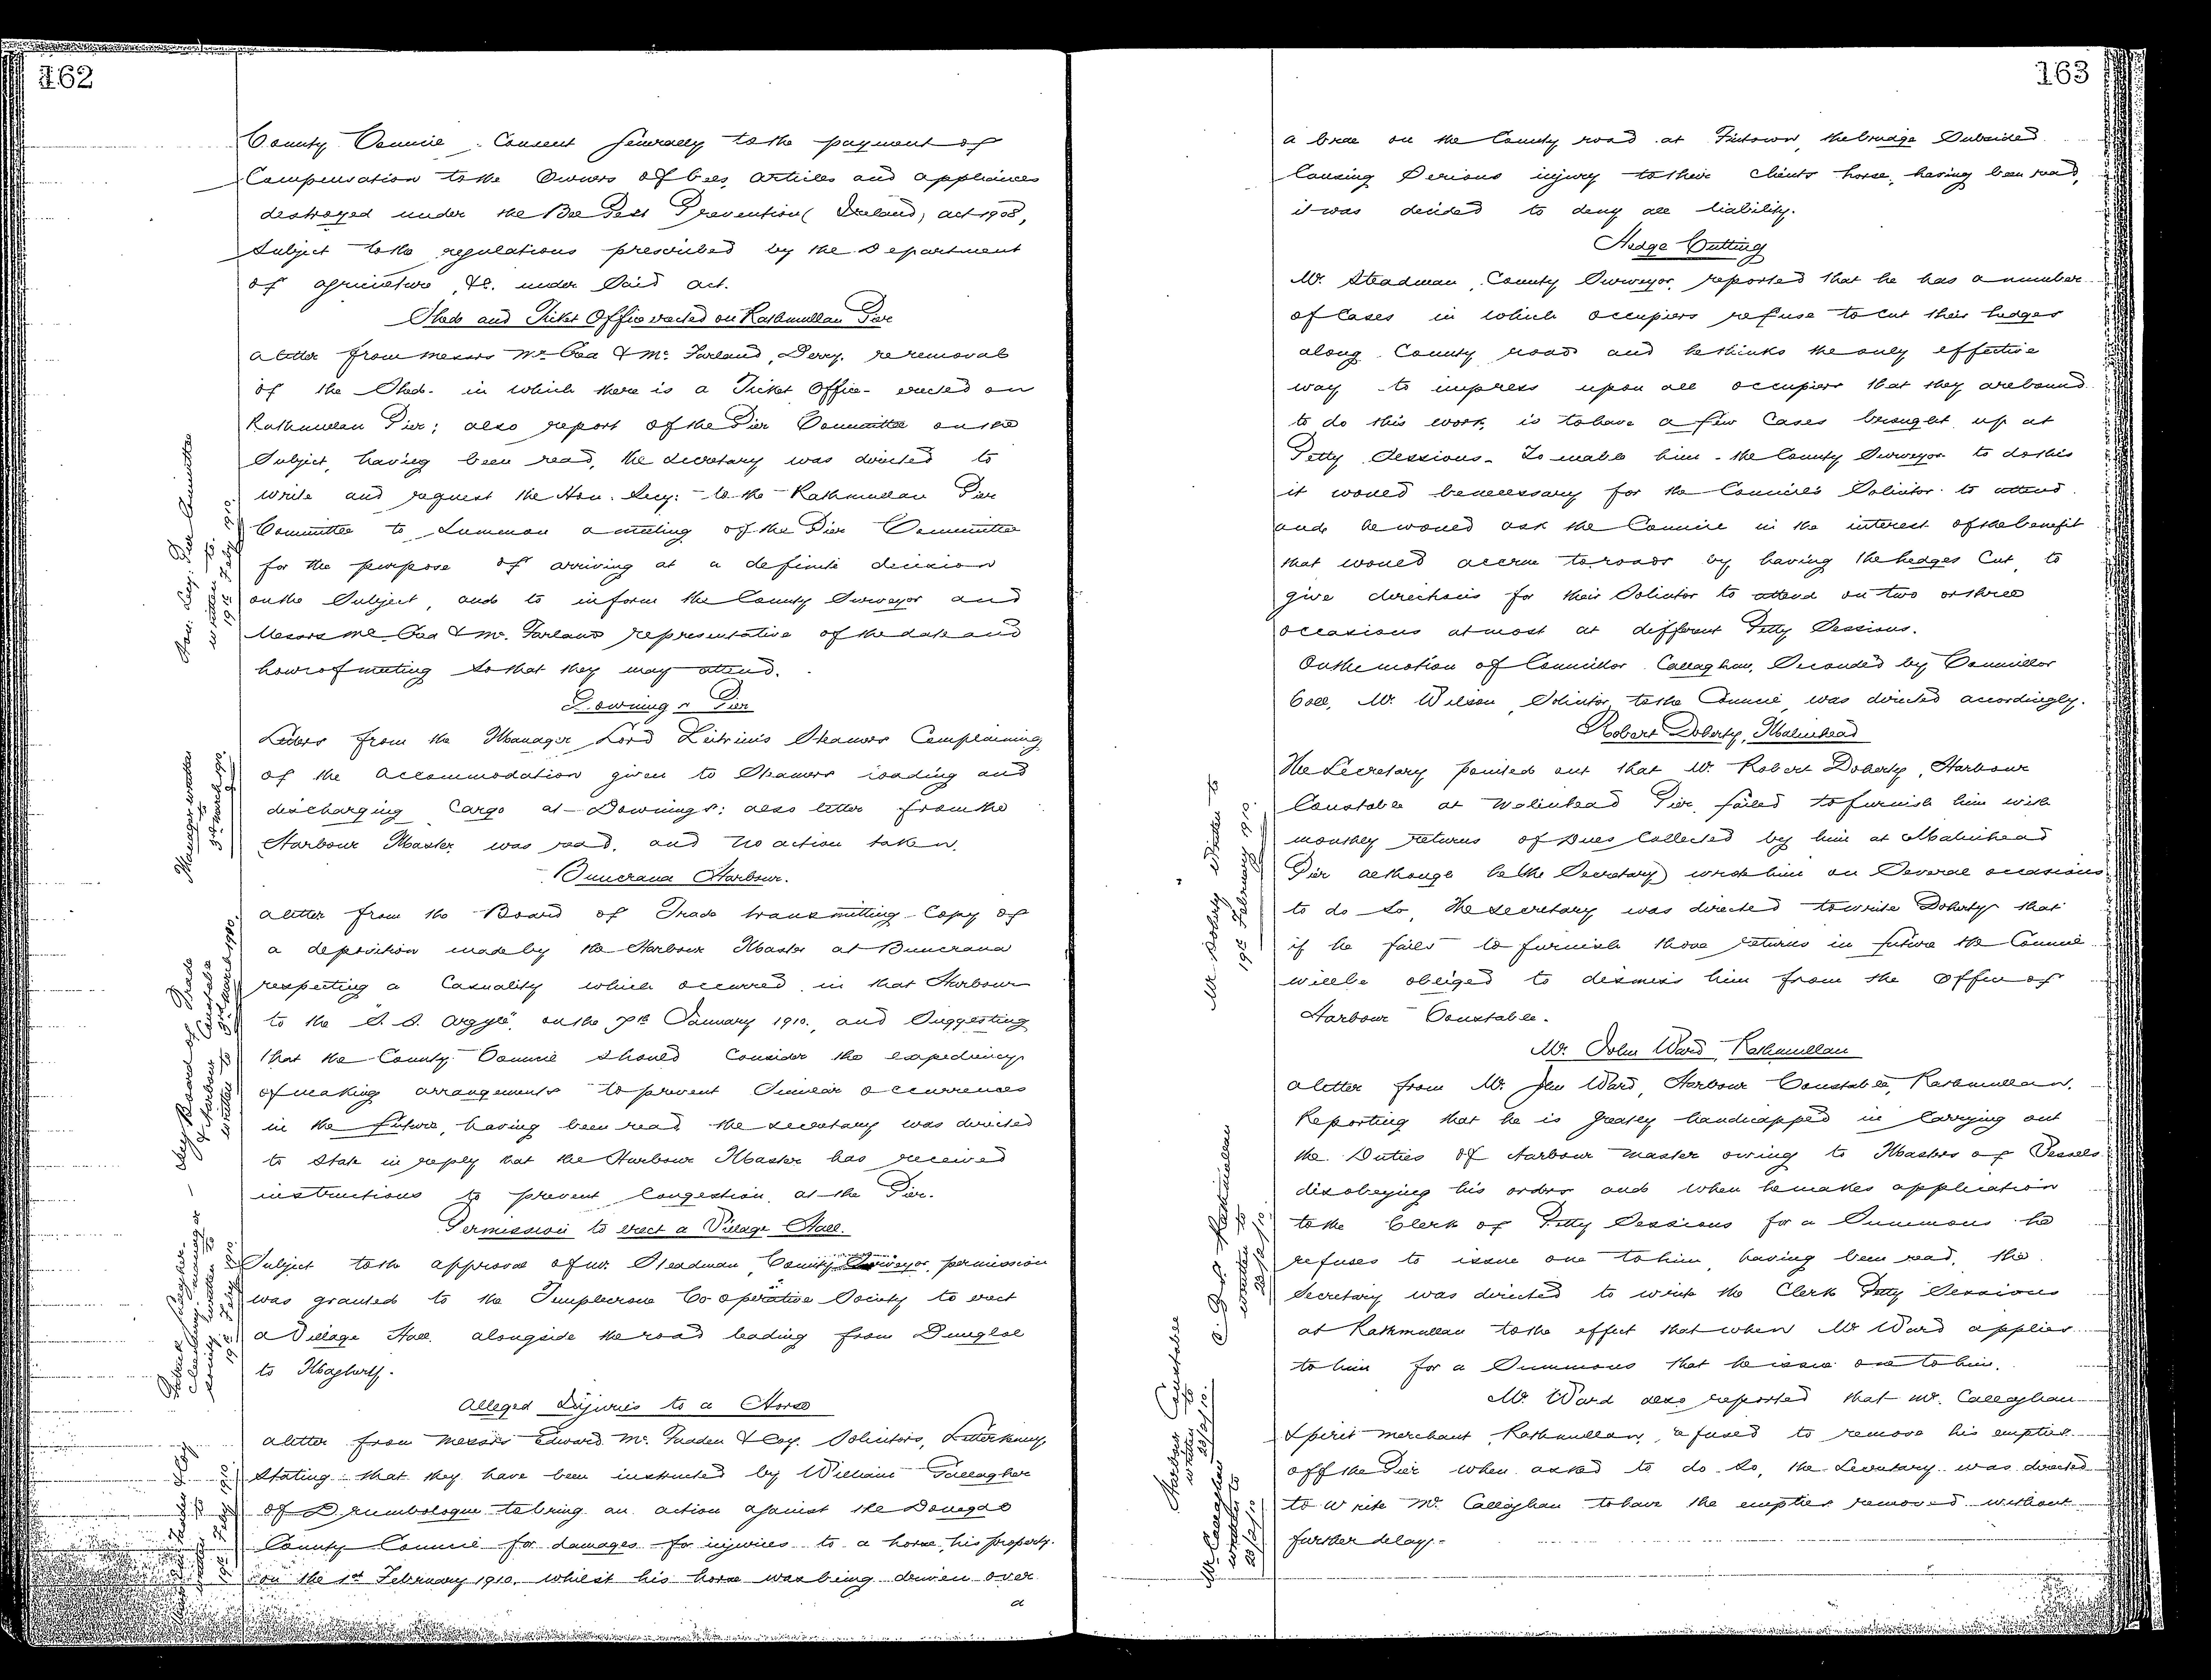 162
County Council Consent generally to the payment of
Compensation to the Owners of bees, articles and appliances
destroyed under the Bee Pest Prevention (Ireland) act 1908,
Subject to the regulations prescribed by the Department
of agriculture, &c. under Said act.
Shed and Ticket Office erected on Rathmullan Pier
a letter from messrs Mc Crea & Mc Farland, Derry, re removal
of the Shed in which there is a Ticket Office erected on
Rathmullan Pier; also report of the Pier Committee on the
Subject, having been read, the Secretary was directed to
write and request the Hon. Secy. to the Rathmullan Pier
Committee to Summon a meeting of the Pier Committee
for the purpose of arriving at a definite decision
on the Subject, and to inform the County Surveyor and
Messrs Mc Crea & Mc. Farland representative of the date and
hour of meeting so that they may attend.
Hon. Secy. Pier Committee
written to
19th Feby 1910.
Downings Pier
Letters from the Manager Lord Leitrim's Steamers Complaining
of the accommodation given to Steamers loading and
discharging Cargo at Downings: also letter from the
Harbour Master, was read, and no action taken.
Manager written
to
3rd March 1910.
Buncrana Harbour.
a letter from the Board of Trade transmitting Copy of
a deposition made by the Harbour Master at Buncrana
respecting a Casuality which occurred in that Harbour
to the S.S. Argyle, on the 7th January 1910., and Suggesting
that the County Council should Consider the expediency
of making arrangements to prevent Similar occurrences
in the future, having been read the Secretary was directed
to state in reply that the Harbour Master has received
instructions to prevent Congestion at the Pier.
Secy Board of Trade
& Harbour Constable
written to 3rd March 1910.
Permission to erect a Village Hall.
Subject to the approval of Mr. Steadman, County Surveyor, permission
was granted to the Templecrone Co operative Society to erect
a Village Hall alongside the road leading from Dungloe
to Maghery.
Patrick Gallagher
written to
19th Feby 1910
Alleged Injuries to a Horse
a letter from messrs Edward Mc. Fadden & Coy. Solicitors, Letterkenny
Stating that they have been instructed by William Gallagher
of Drumbologue to bring an action against the Donegal
County Council for damages for injuries to a horse, his property.
on the 1st February 1910, whilst his horse was being driven over
a
19th Feby 1910
163
a bridge on the County road at Fintown, the bridge Subsided
Causing Serious injury to their Clients horse, having been read,
it was decided to deny all liability.
Hedge Cutting
Mr. Steadman, County Surveyor, reported that he has a number
of Cases in which occupiers refuse to cut their hedges
along County roads and he thinks the only effective
way to impress upon all occupiers that they are bound
to do this work, is to have a few Cases brought up at
Petty Sessions. To enable him the County Surveyor to do this
it would be necessary for the Council's Solicitor to attend
and he would ask the Council in the interest of the benefit
that would accrue to roads by having the hedges Cut, to
give directions for their Solicitor to attend on two or three
occasions at most at different Petty Sessions.
On the motion of Councillor Callaghan, Seconded by Councillor
Coll, Mr. Wilson, Solicitor to the Council was directed accordingly.
Robert Doherty, Malinhead
The Secretary pointed out that Mr. Robert Doherty, Harbour
Constable at Malinhead Pier, failed to furnish him with
monthly returns of Dues Collected by him at Malinhead
Pier although he (the Secretary) wrote him on Several occasions
to do so, the Secretary was directed to write Doherty that
if he fails to furnish those returns in future the Council
will be obliged to dismiss him from the Office of
Harbour Constable.
Mr. Doherty Written to
19th February 1910.
Mr. John Ward, Rathmullan
a letter from Mr. Jno Ward, Harbour Constable, Rathmullan,
Reporting that he is greatly handicapped in Carrying out
the Duties of Harbour Master owing to Masters of Vessels
disobeying his orders and when he makes application
to the Clerk of Petty Sessions for a Summons he
refuses to issue one to him, having been read, the
Secretary was directed to write the Clerk Petty Sessions
at Rathmullan to the effect that when Mr Ward applies
to him for a Summons that he issue one to him.
C. P. S. Rathmullan
written to
23/2/10.
Mr. Ward also reported that Mr. Callaghan
Spirit Merchant, Rathmullan, refused to remove his empties
off the Pier when asked to do so, the Secretary was directed
to write Mr. Callaghan to have the empties removed without
further delay.
Harbour Constable
written to
23/2/10.
Mr. Callaghan
written to
23/2/10